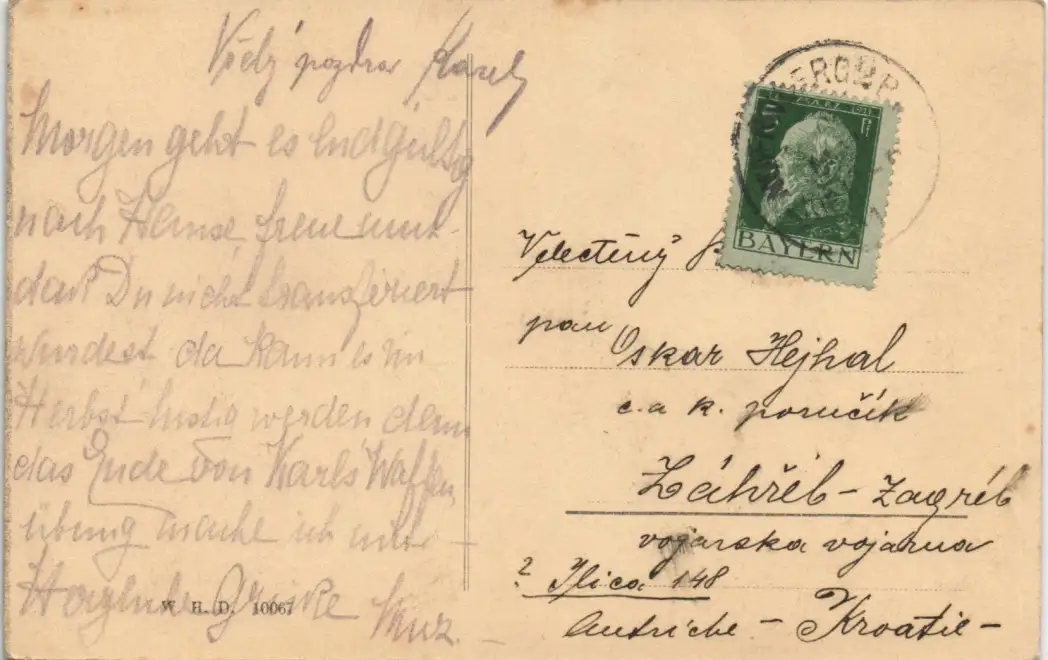 pozdrav Karel
Morgen geht es endgültig
nach Hause, freue mich
daß Du nicht transferiert
wurdest da kann es im
Herbst lustig werden denn
das Ende von Karls Waffen
übung mache ich mit
Herzliche Grüße
W. H. D. 10067
BAYERN
Velectěný
pan
Oskar Hejhal
c. a k. poručík
Záhřeb - Zagréb
vojarska vojarna
? Ilica 148
Autriche - Kroatie -